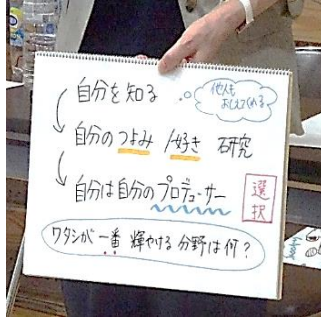 自分を知る
他人も
おしえてくれる
自分のつよみ/好き 研究
自分は自分のプロデューサー
選択
ワタシが一番 輝やける 分野は何?